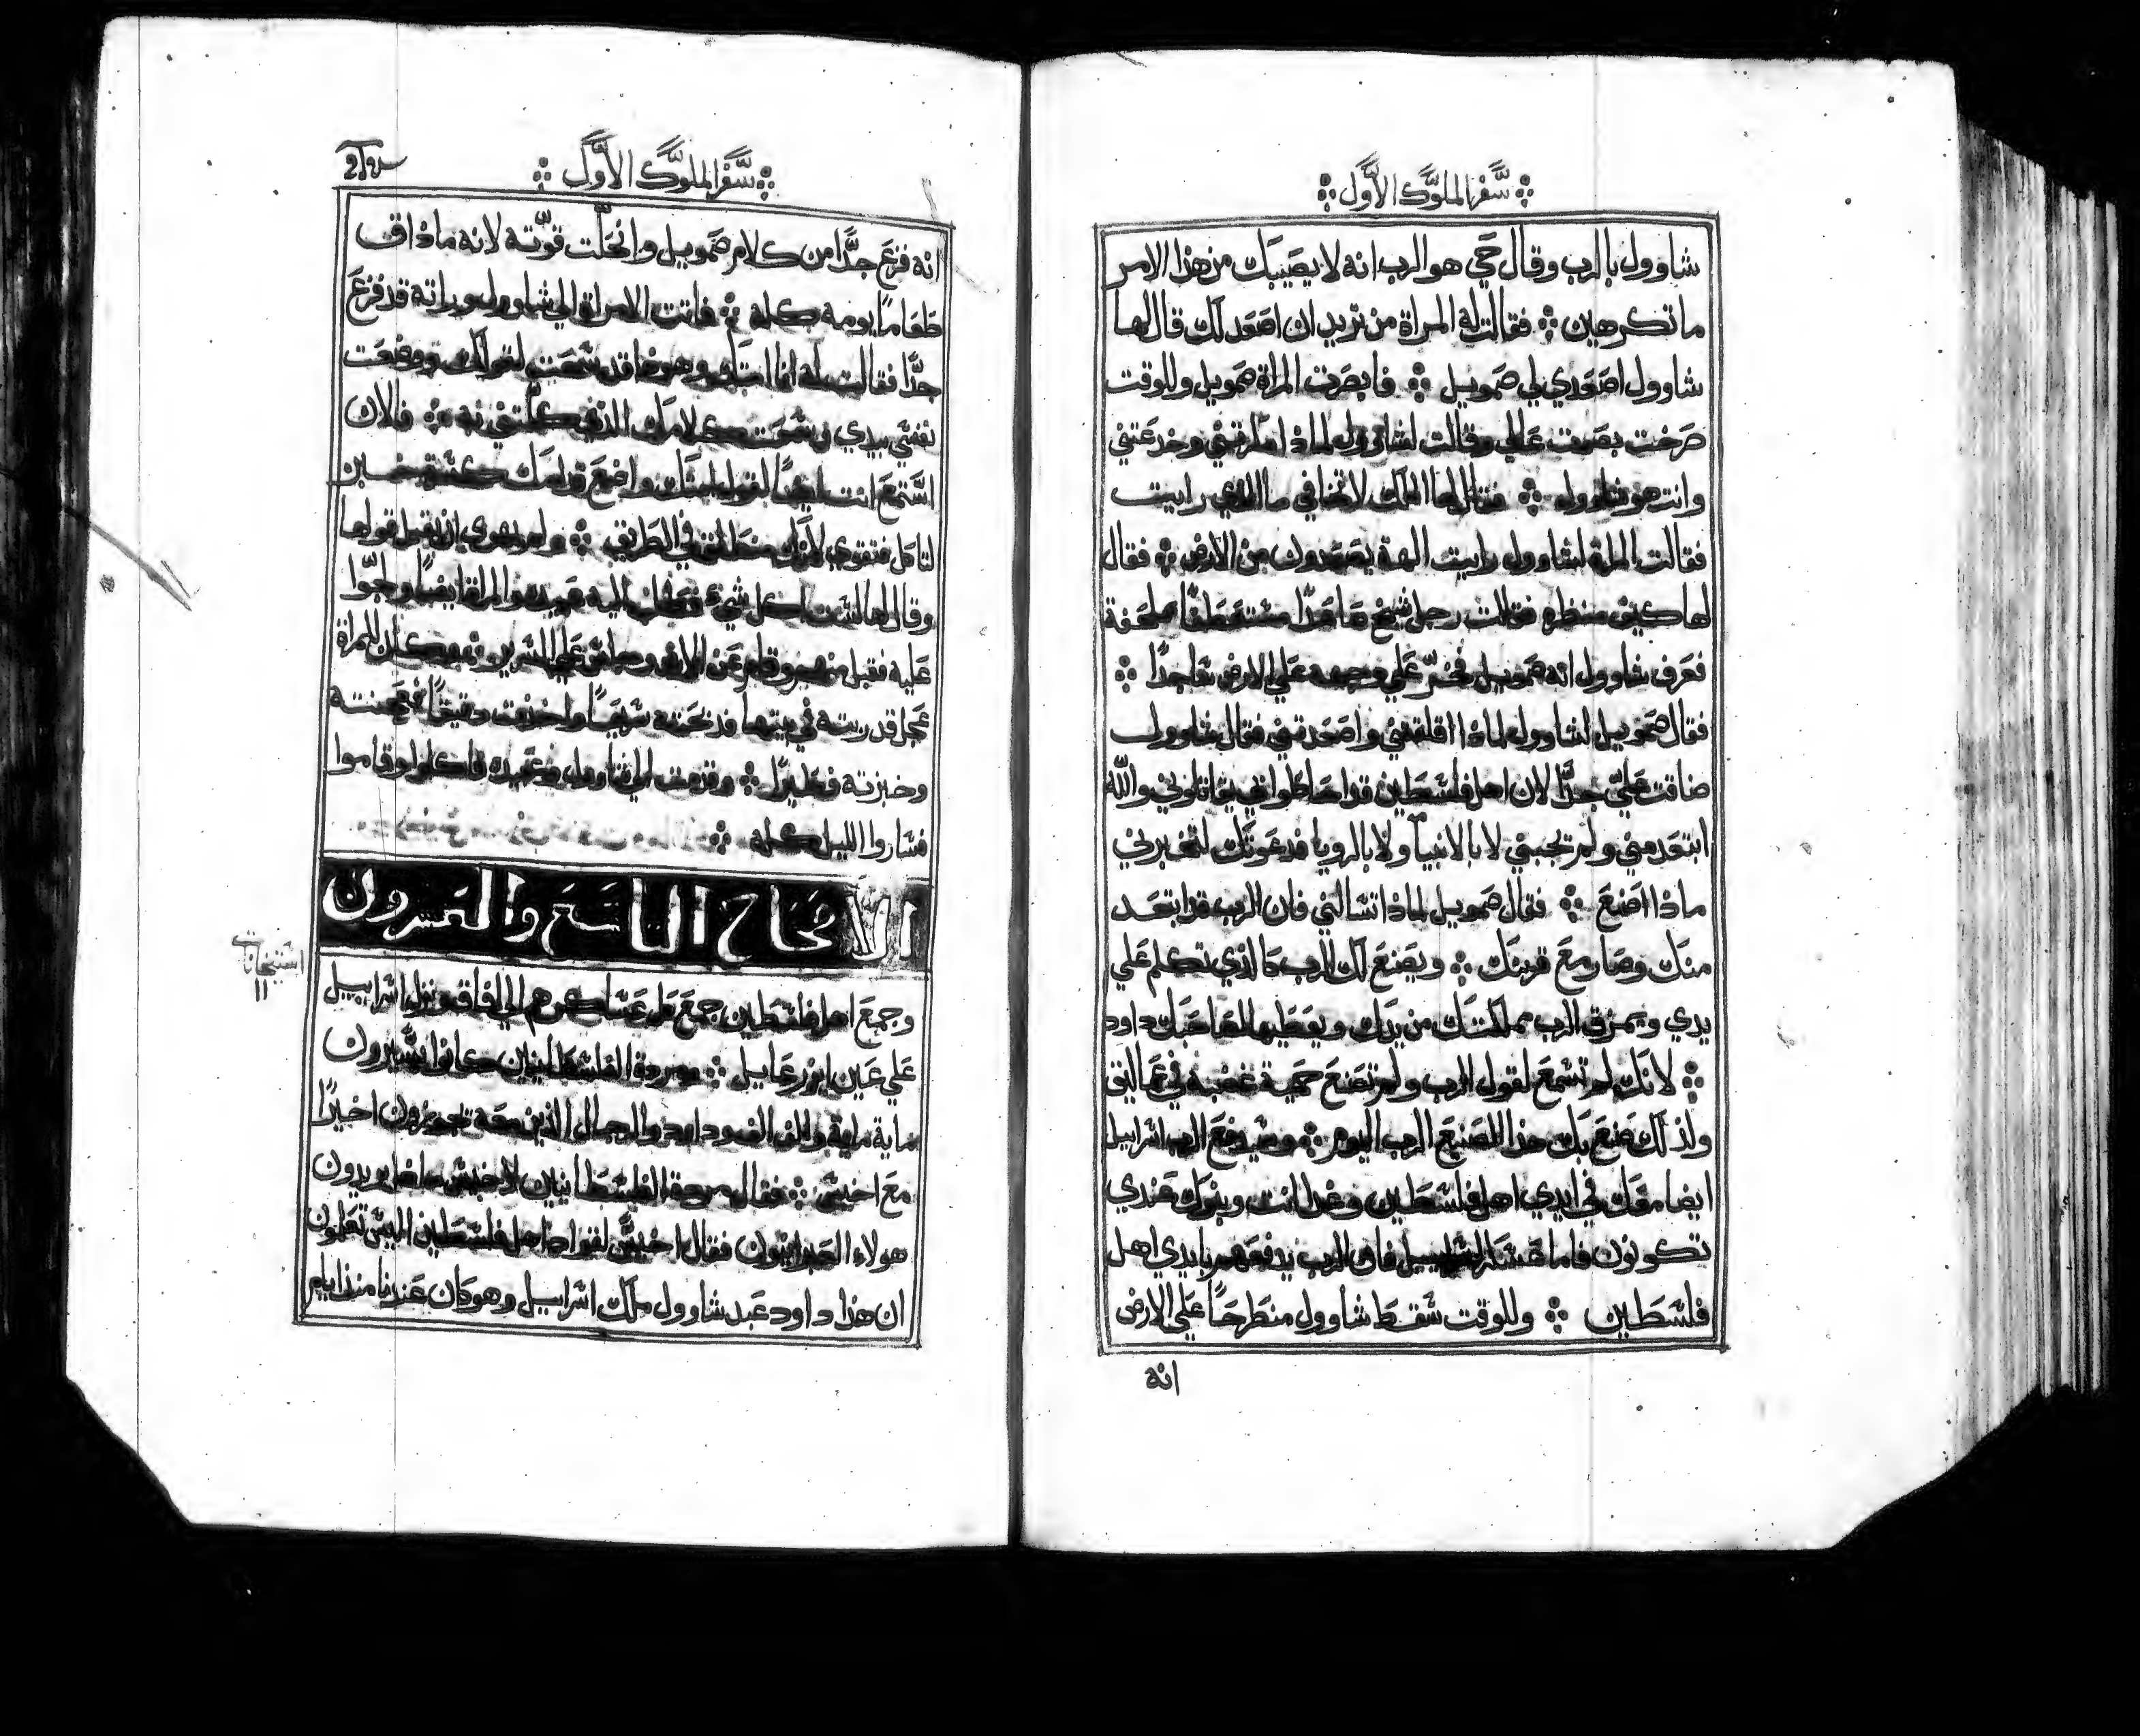 سفر الملوك الاول
شاوول بالرب وقال حي هو الرب انه لا يصيبك من هذا الامر
ما تكرهين فقالت له المراة من تريد ان اصعد لك قال لها
شاوول اصعدي لي صمويل فابصرت المراة صمويل وللوقت
صرخت بصوت عالي وقالت لشاوول لماذا مكرتني وخدعتني
وانت هو شاوول فقال لها الملك لا تخافي ما الذي رايت
فقالت المراة لشاوول رايت الهة يصعدون من الارض فقال
لها كيف منظره فقالت رجل شيخ صاعدا متعطفا ملحفة
فعرف شاوول انه صمويل فخر علي وجهه علي الارض ساجدا
فقال صمويل لشاوول لماذا اقلقتني واصعدتني فقال شاوول
ضاقت علي جدا لان اهل فلسطين قد احاطوا بي يقاتلوني والله
ابتعد مني ولم تجبني لا بالانبيا ولا بالرويا فدعوتك لتخبرني
ماذا اصنع فقال صمويل لماذا تسالني فان الرب قد ابتعد
منك وصار مع قريبك ويصنع لك الرب كالذي تكلم علي
يدي ويمزق الرب مملكتك من يدك ويعطيها لصاحبك داود
لانك لم تسمع لقول الرب ولم تصنع حمية غضبه في عماليق
ولذلك صنع بك هذا الصنيع الرب اليوم وسيدفع الرب اسراييل
ايضا معك في ايدي اهل فلسطين وغدا انت وبنوك عندي
تكونون فاما عسكر اسراييل فان الرب يدفعهم بايدي اهل
فلسطين وللوقت سقط شاوول منطرحا علي الارض
انه
سفر الملوك الاول
انه فزع جدا من كلام صمويل وانحلت قوته لانه ما ذاق
طعاما يومه كله فاتت الامراة الي شاوول وراته قد فزع
جدا فقالت له انا امتك وهوذا قد سمعت لقولك ووضعت
نفسي بيدي وسمعت كلامك الذي كلمتني به فالان
استمع انت ايضا لقول امتك واضع قدامك كسرة خبز
لتاكل فتقوي لانك منطلق في الطريق ولم يهوي ان يقبل قولها
وقال لها لست اكل شيء فجلس اليه عبيده والمراة ايضا ولجوا
عليه فقبل منهم وقام عن الارض وجلس علي السرير وكان للمراة
عجل قد ربته في بيتها فذبحته سريعا واخذت دقيقا فعجنته
وخبزته فطيرا وقدمت الي شاوول وعبيده فاكلوا وقاموا
فساروا الليل كله
الاصحاح التاسع والعشرون
استيخانات
١١
وجمع اهل فلسطين جميع عساكرهم الي افاق ونزل اسراييل
علي عين ايزرعاييل ومردة الفلسطانيين كانوا يسيرون
ماية ماية والف الف وداود والرجال الذين معه يجوزون اخيرا
مع اخيش فقال مردة الفلسطانيين لاخيش ماذا يريدون
هولاء العبرانيون فقال اخيش لقواد اهل فلسطين اليس تعلمون
ان هذا داود عبد شاوول ملك اسراييل وهو كان عندنا منذ ايام